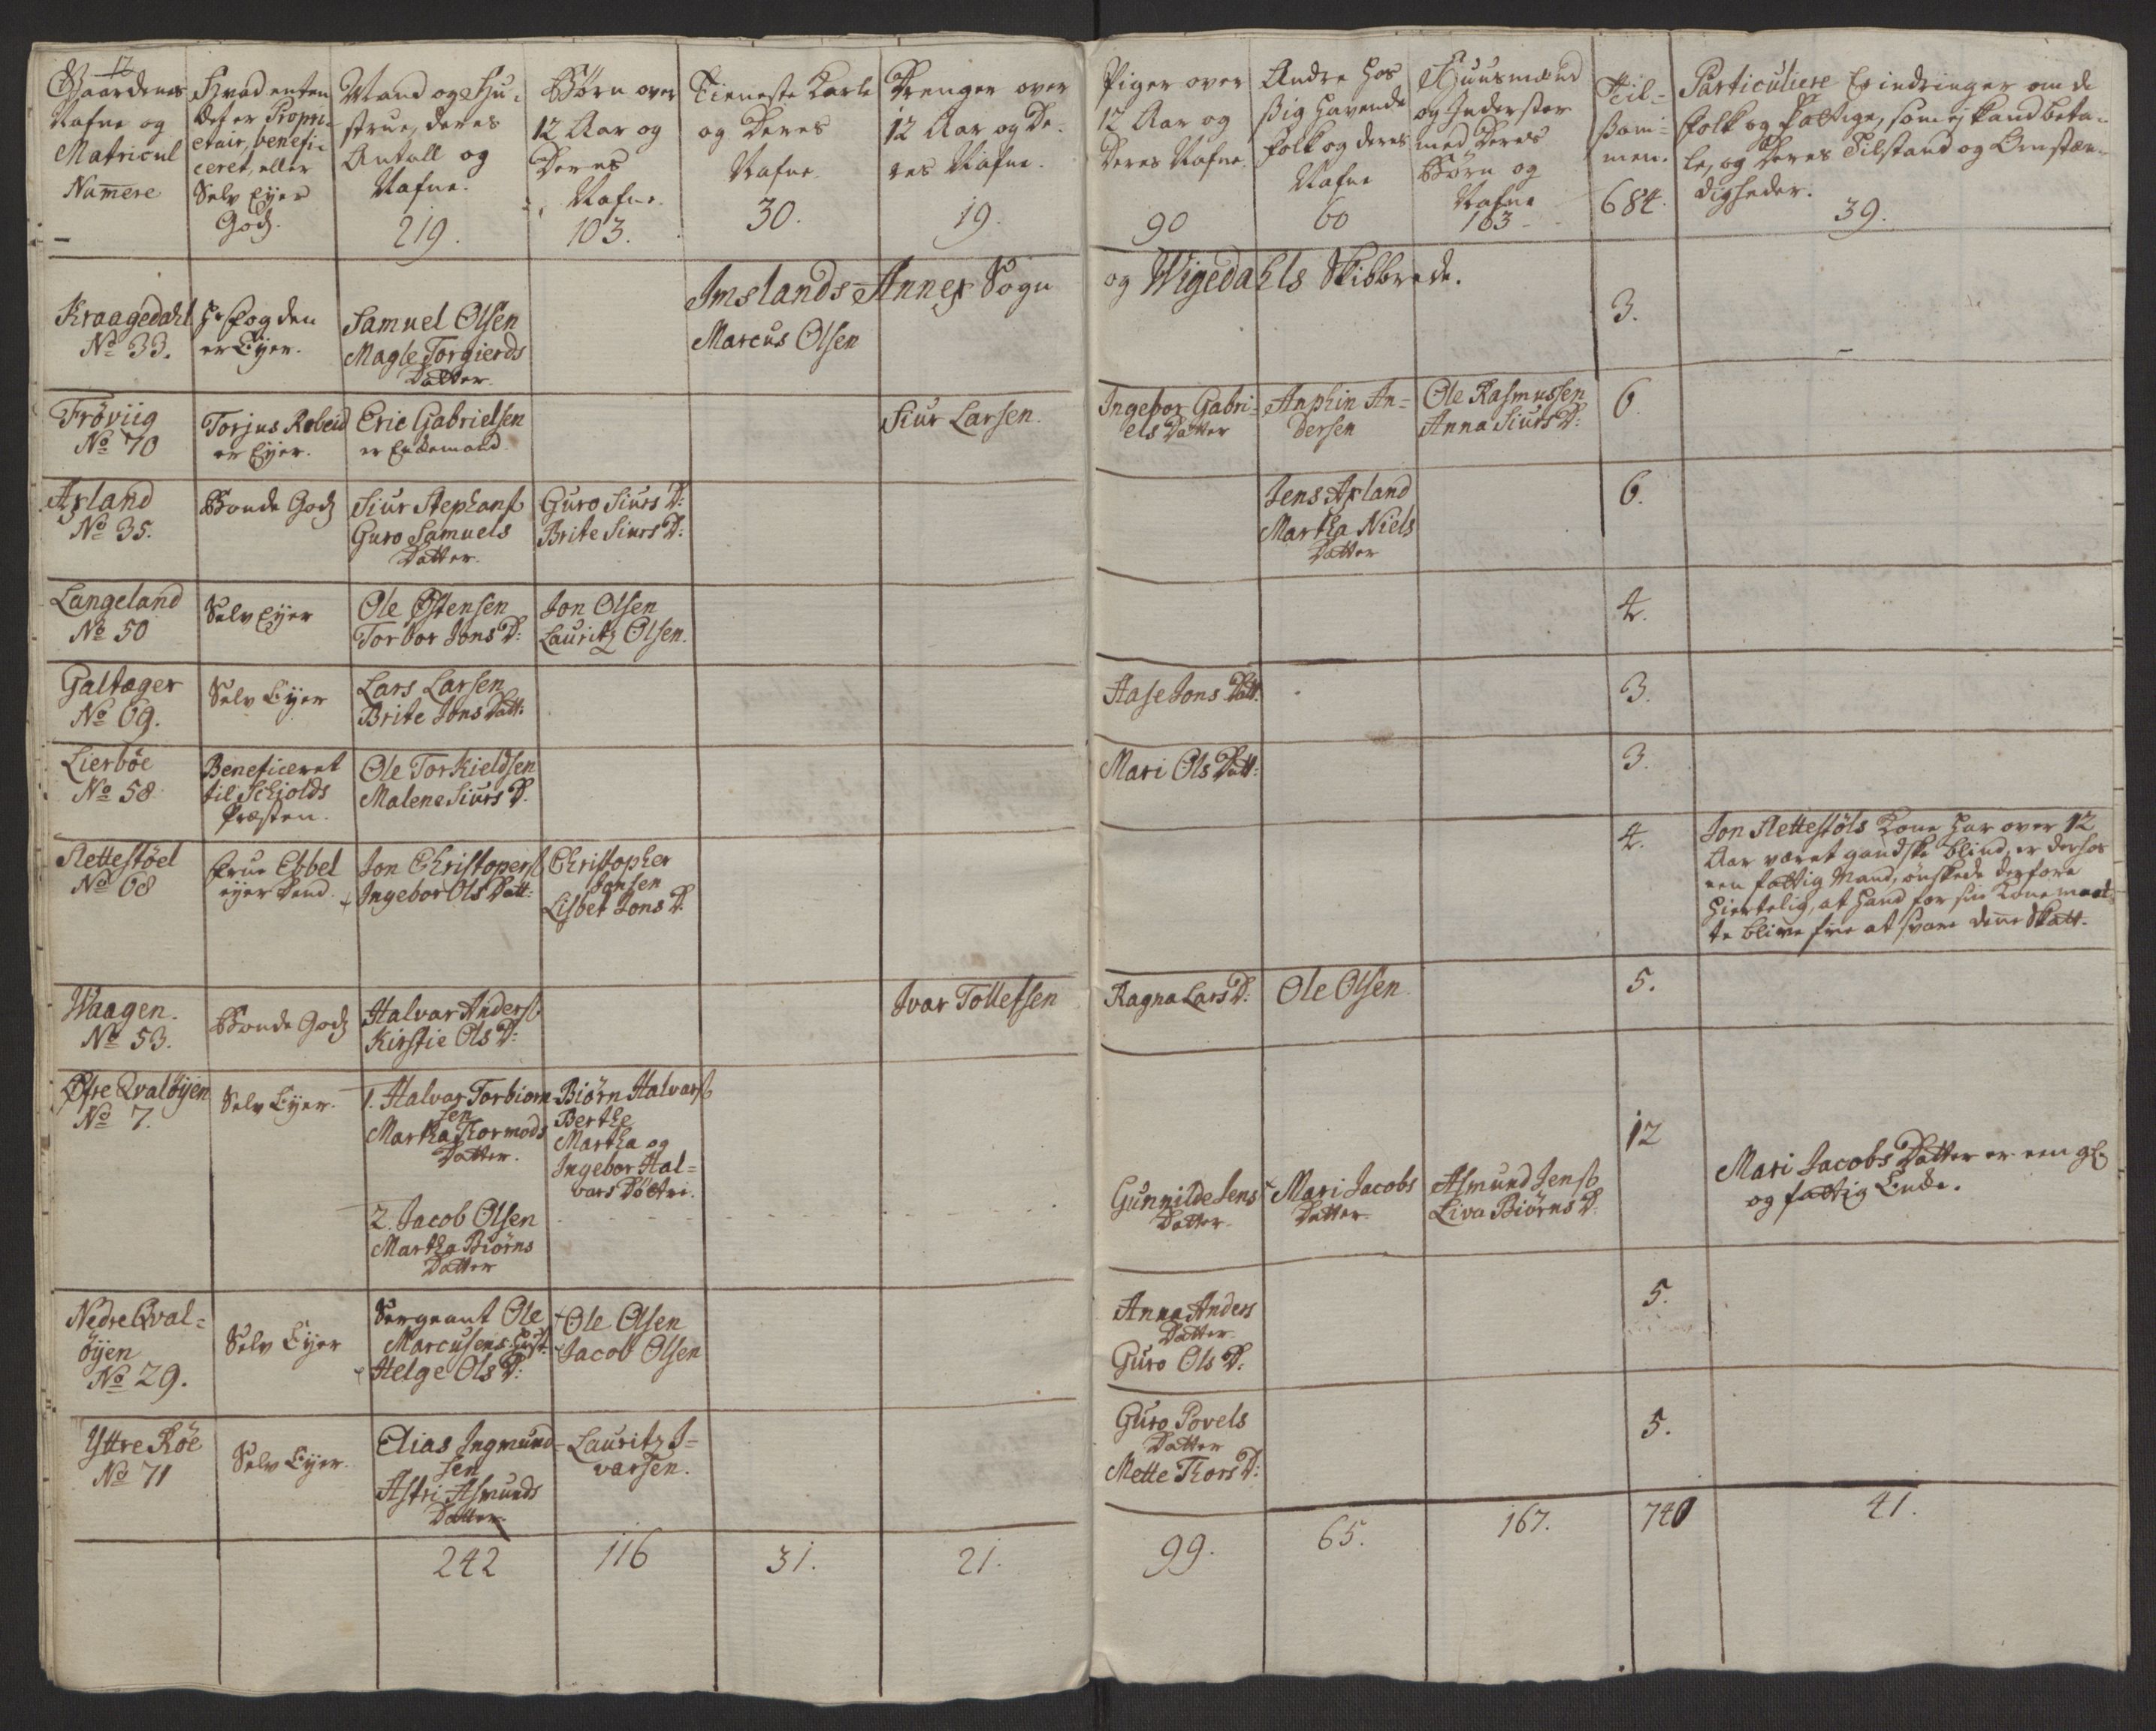 12
Gaardenes
Nafne og
Matricul
Numere
Hvad enten
det er Propri-
etair, benefi-
ceret, eller
Selv Eyer
Godz.
Mand og Hu-
strue, deres
Antall og
Nafne.
219.
Børn over
12 Aar og
Deres
Nafne.
103.
Tieneste Karle
og Deres
Nafne.
30.
Drenger over
12 Aar og De-
res Nafne.
19.
Piger over
12 Aar og
Deres Nafne.
90
Andre hos
sig havende
folk og deres
Nafne
60
Huusmænd
og Inderster
med Deres
Børn og
Nafne
163
Til-
sam-
men.
684.
Particuliere Erindringer om de
folk og fattige, som ej kand beta-
le, og Deres Tilstand og Omstæn-
digheder.
39.
Imslands Annex Sogn og Wigedahls Skibbrede.
Kraagedahl
No 33.
Hr fogden
er Eyer.
Samuel Olsen
Magle Torgierds
Datter
Marcus Olsen
3.
Frøviig
No 70
Torjus Røbeid
er Eyer.
Eric Gabrielsen
er Enkemand
Siur Larsen.
Ingebor Gabri-
els Datter
Anphin An-
dersen
Ole Rasmussen
Anna Siurs D:
6.
Axland
No 35.
Bonde Godz
Siur Stephans
Guro Samuels
Datter.
Guro Siurs D:
Brite Siurs D:
Jens Axland
Martha Niels
Datter
6.
Langeland
No 50
Selv Eyer
Ole Østensen
Torbor Jons D:
Jon Olsen
Lauritz Olsen.
4.
Galtæger
No 69.
Selv Eyer
Lars Larsen
Brite Jons Datt:
Aase Jons Datt:
3.
Lierbøe
No 58
Beneficeret
til Schiolds
Præsten.
Ole Torkieldsen
Malene Siurs D.
Mari Ols Datt:
3.
Slettestøel
No 68
frue Ebbel
eyer Dend.
Jon Christopers
Ingebor Ols Datt:
Christopher
Jonsen
Lisbet Jons D.
4.
Jon Slettestøls Kone har over 12
Aar været gandske blind, er derhos
een fattig Mand, ønskede derfore
hiertelig, at hand for sin Kone maat-
te blive frie at svare denne Skatt.
Waagen.
No 53.
Bonde Godz
Halvar Anders
Kirstie Ols D:
Ivar Tollefsen
Ragna Lars D:
Ole Olsen
5.
Øfre Qvaløyen
No 7.
Selv Eyer.
1. Halvar Torbiorn-
sen
Martha Thormods
Datter.
Biørn Halvars
Berthe
Martha og
Ingebor Hal-
vars Døttre.
2. Jacob Olsen
Martha Biørns
Datter
Gunnilde Jens
Datter
Mari Jacobs
Datter
Asmund Jens
Liva Biørns D.
12
Mari Jacobs Datter er een gl:
og fattig Enke.
Nedre Qval-
øyen
No 29.
Selv Eyer
Sergeant Ole
Marcusens Hust:
Helge Ols D:
Ole Olsen
Jacob Olsen
Anna Anders
Datter
Guro Ols D:
5.
Yttre Røe
No 71
Selv Eyer.
Elias Ingmund-
sen
Astri Asmunds
Datter
Lauritz I-
varsen.
Guro Povels
Datter
Mette Thors D:
5.
242
116
31.
21.
99.
65.
167.
740
41.